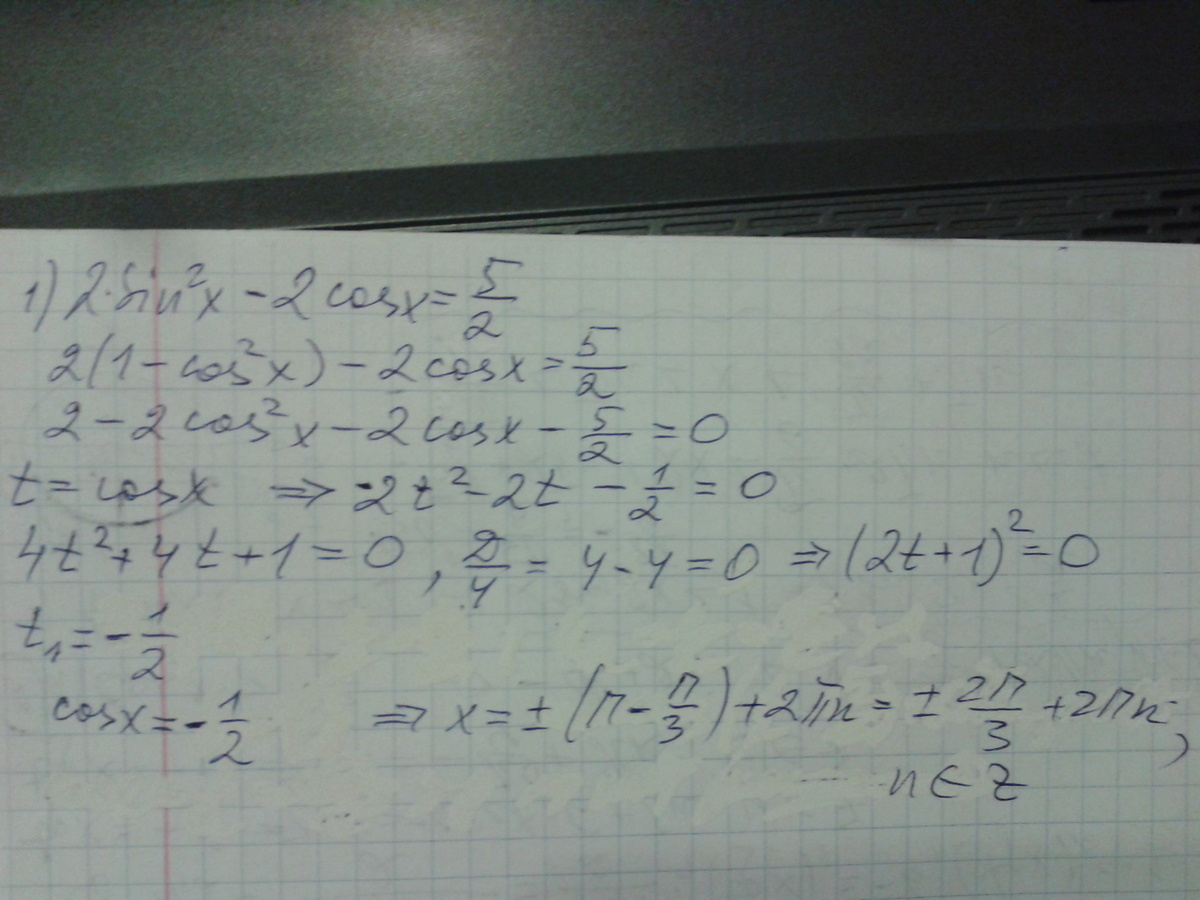 1) 2·sin²x - 2cosx = 5/2
2(1 - cos²x) - 2cosx = 5/2
2 - 2cos²x - 2cosx - 5/2 = 0
t = cosx ⇒ -2t² - 2t - 1/2 = 0
4t² + 4t + 1 = 0, D/4 = 4 - 4 = 0 ⇒ (2t+1)² = 0
t₁ = -1/2
cosx = -1/2 ⇒ x = ±(π - π/3) + 2πn = ±2π/3 + 2πn,
n ∈ Z